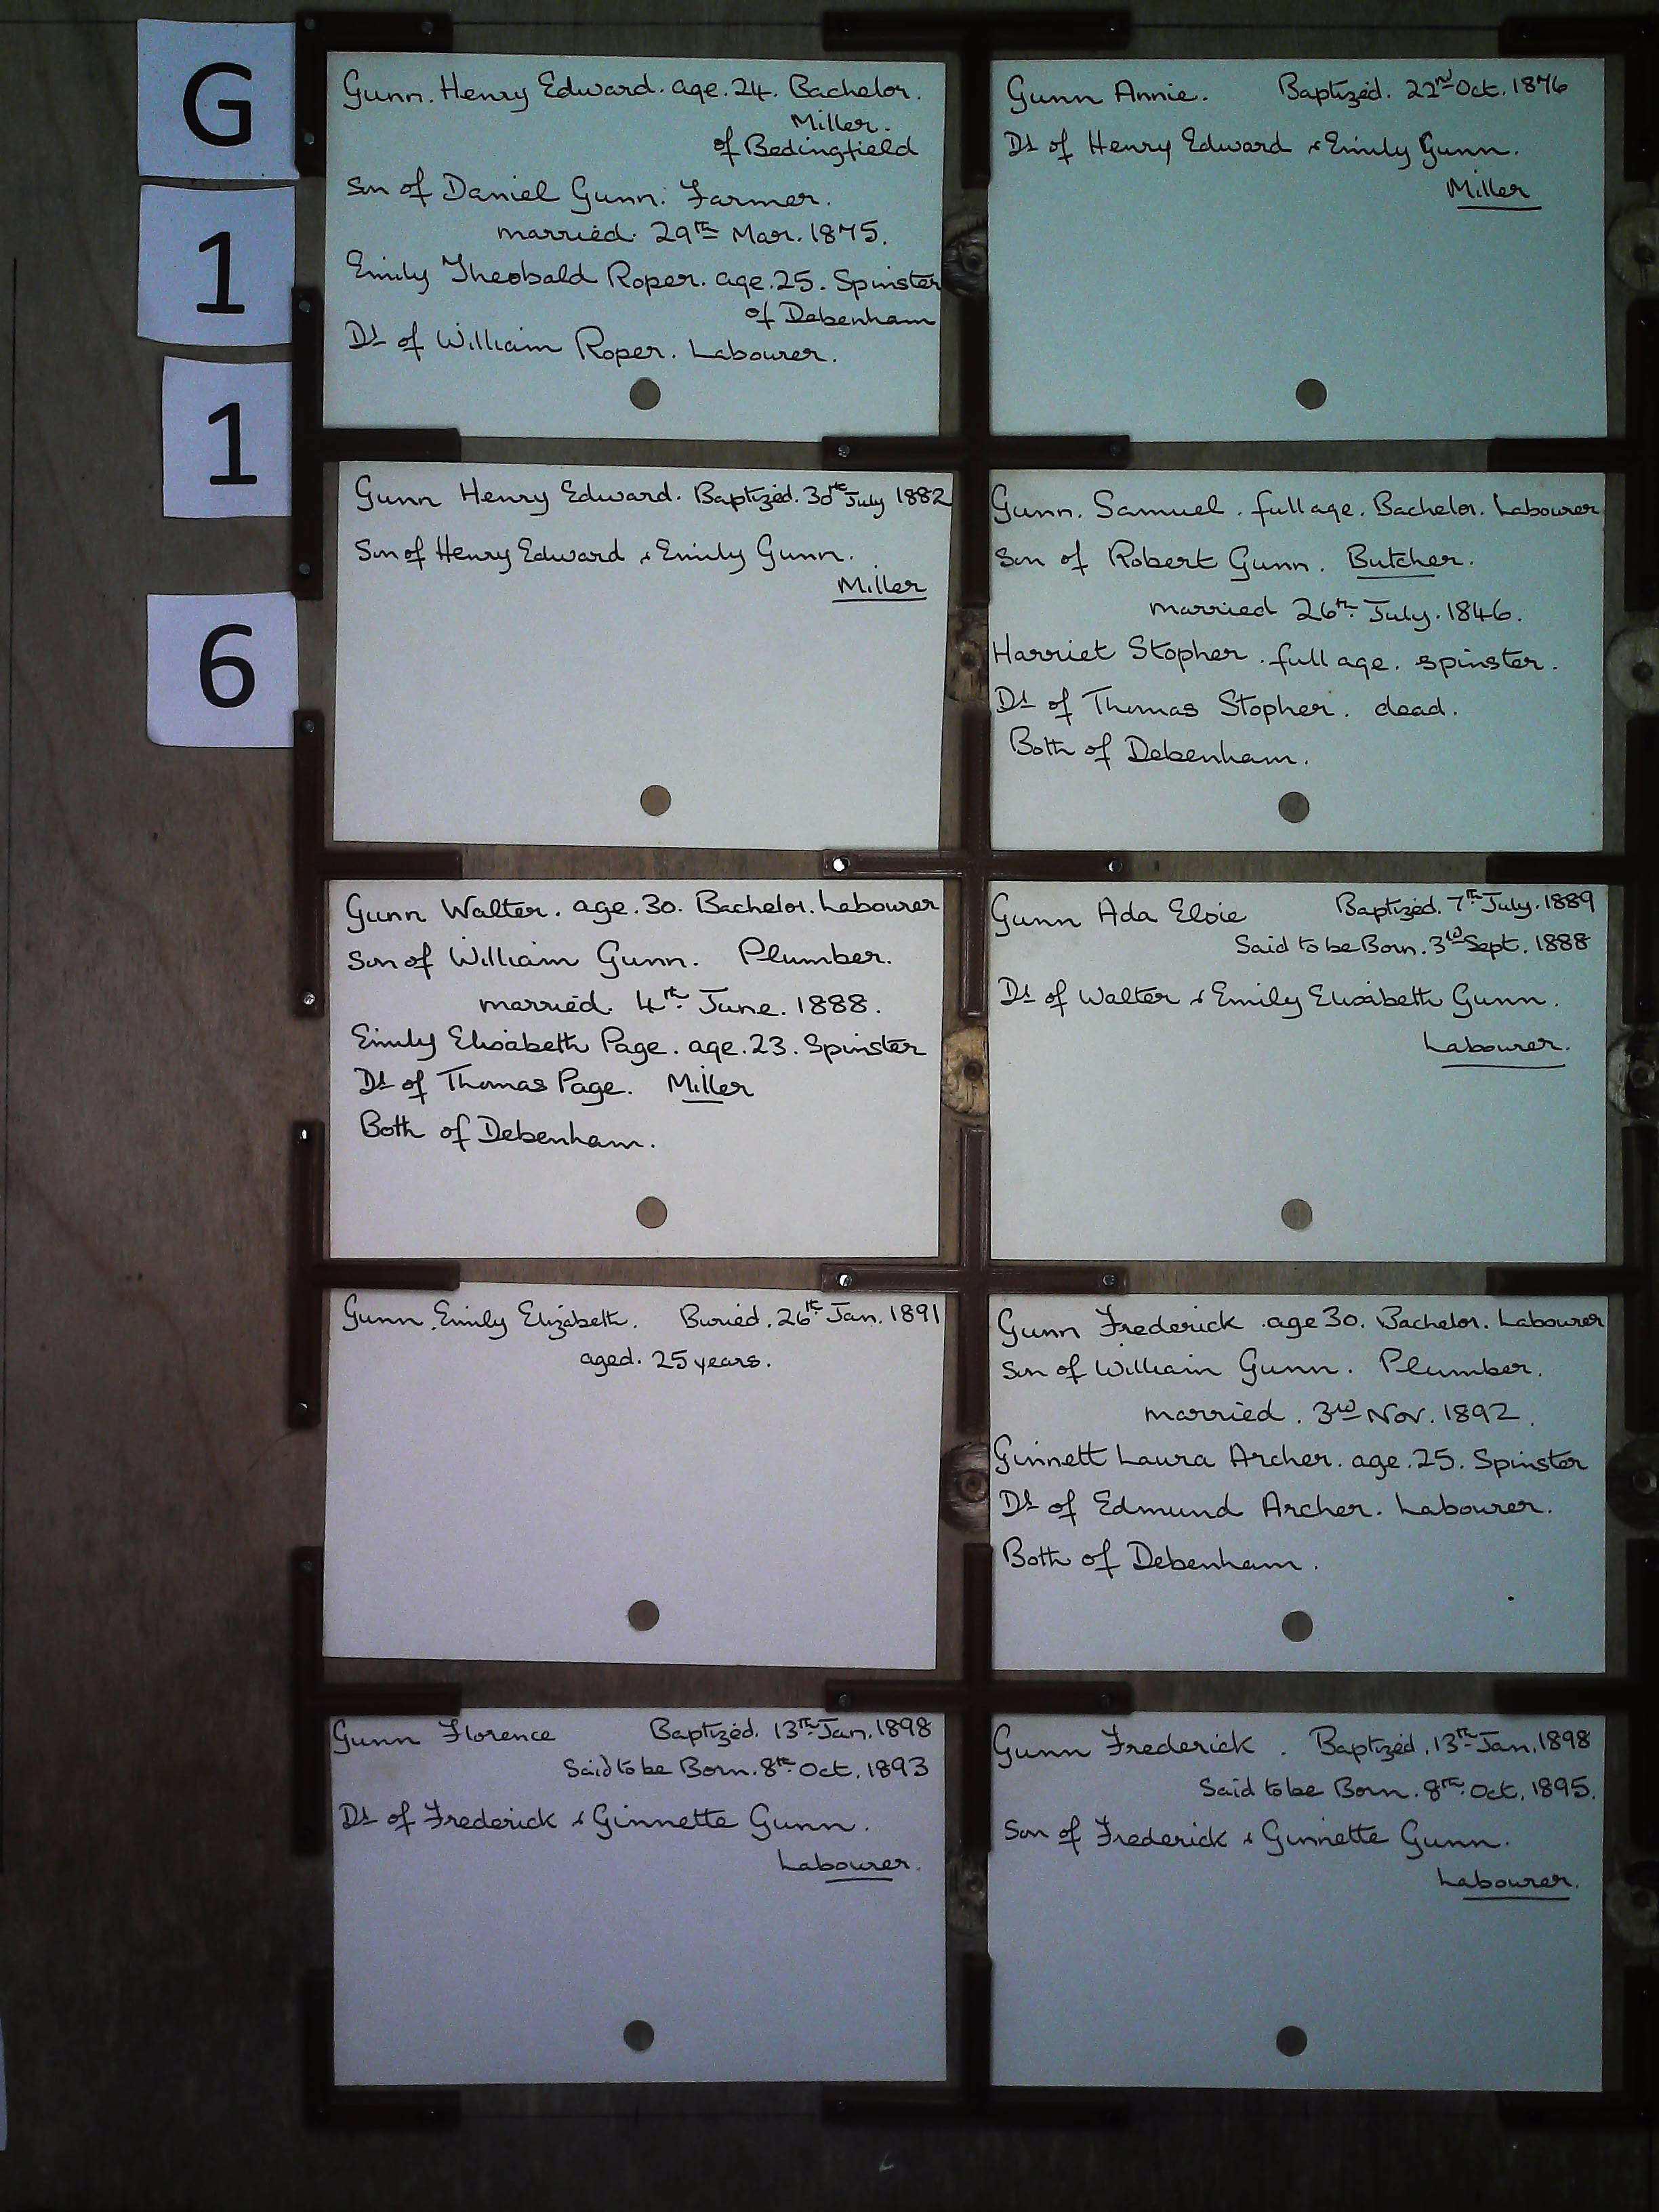 G
1
1
6
Gunn. Henry Edward. age. 24. Bachelor.
Miller.
of Bedingfield
Son of Daniel Gunn. Farmer.
married. 29th Mar. 1875.
Emily Theobald Roper. age. 25. Spinster
of Debenham
Dr of William Roper. Labourer.
Gunn Annie. Baptized. 22nd Oct. 1876
Dr of Henry Edward & Emily Gunn.
Miller
Gunn Henry Edward. Baptized. 30th July 1882
Son of Henry Edward & Emily Gunn.
Miller
Gunn. Samuel. full age. Bachelor. Labourer
Son of Robert Gunn. Butcher.
married 26th July. 1846.
Harriet Stopher. full age. spinster.
Dr of Thomas Stopher. dead.
Both of Debenham.
Gunn Walter. age. 30. Bachelor. Labourer
Son of William Gunn. Plumber.
married. 4th June. 1888.
Emily Elisabeth Page. age. 23. Spinster
Dr of Thomas Page. Miller
Both of Debenham.
Gunn Ada Baptized. 7th July. 1889
Said to be Born. 3rd Sept. 1888
Dr of Walter & Emily Elisabeth Gunn.
Labourer.
Gunn. Emily Elizabeth. Buried. 26th Jan. 1891
aged. 25 years.
Gunn Frederick. age 30. Bachelor. Labourer
Son of William Gunn. Plumber.
married. 3rd Nov. 1892.
Ginnett Laura Archer. age. 25. Spinster
Dr of Edmund Archer. Labourer.
Both of Debenham.
Gunn Florence Baptized. 13th Jan. 1898
Said to be Born. 8th Oct. 1893
Dr of Frederick & Ginnette Gunn.
Labourer.
Gunn Frederick. Baptized. 13th Jan. 1898
Said to be Born. 8th Oct. 1895.
Son of Frederick & Ginnette Gunn.
Labourer.